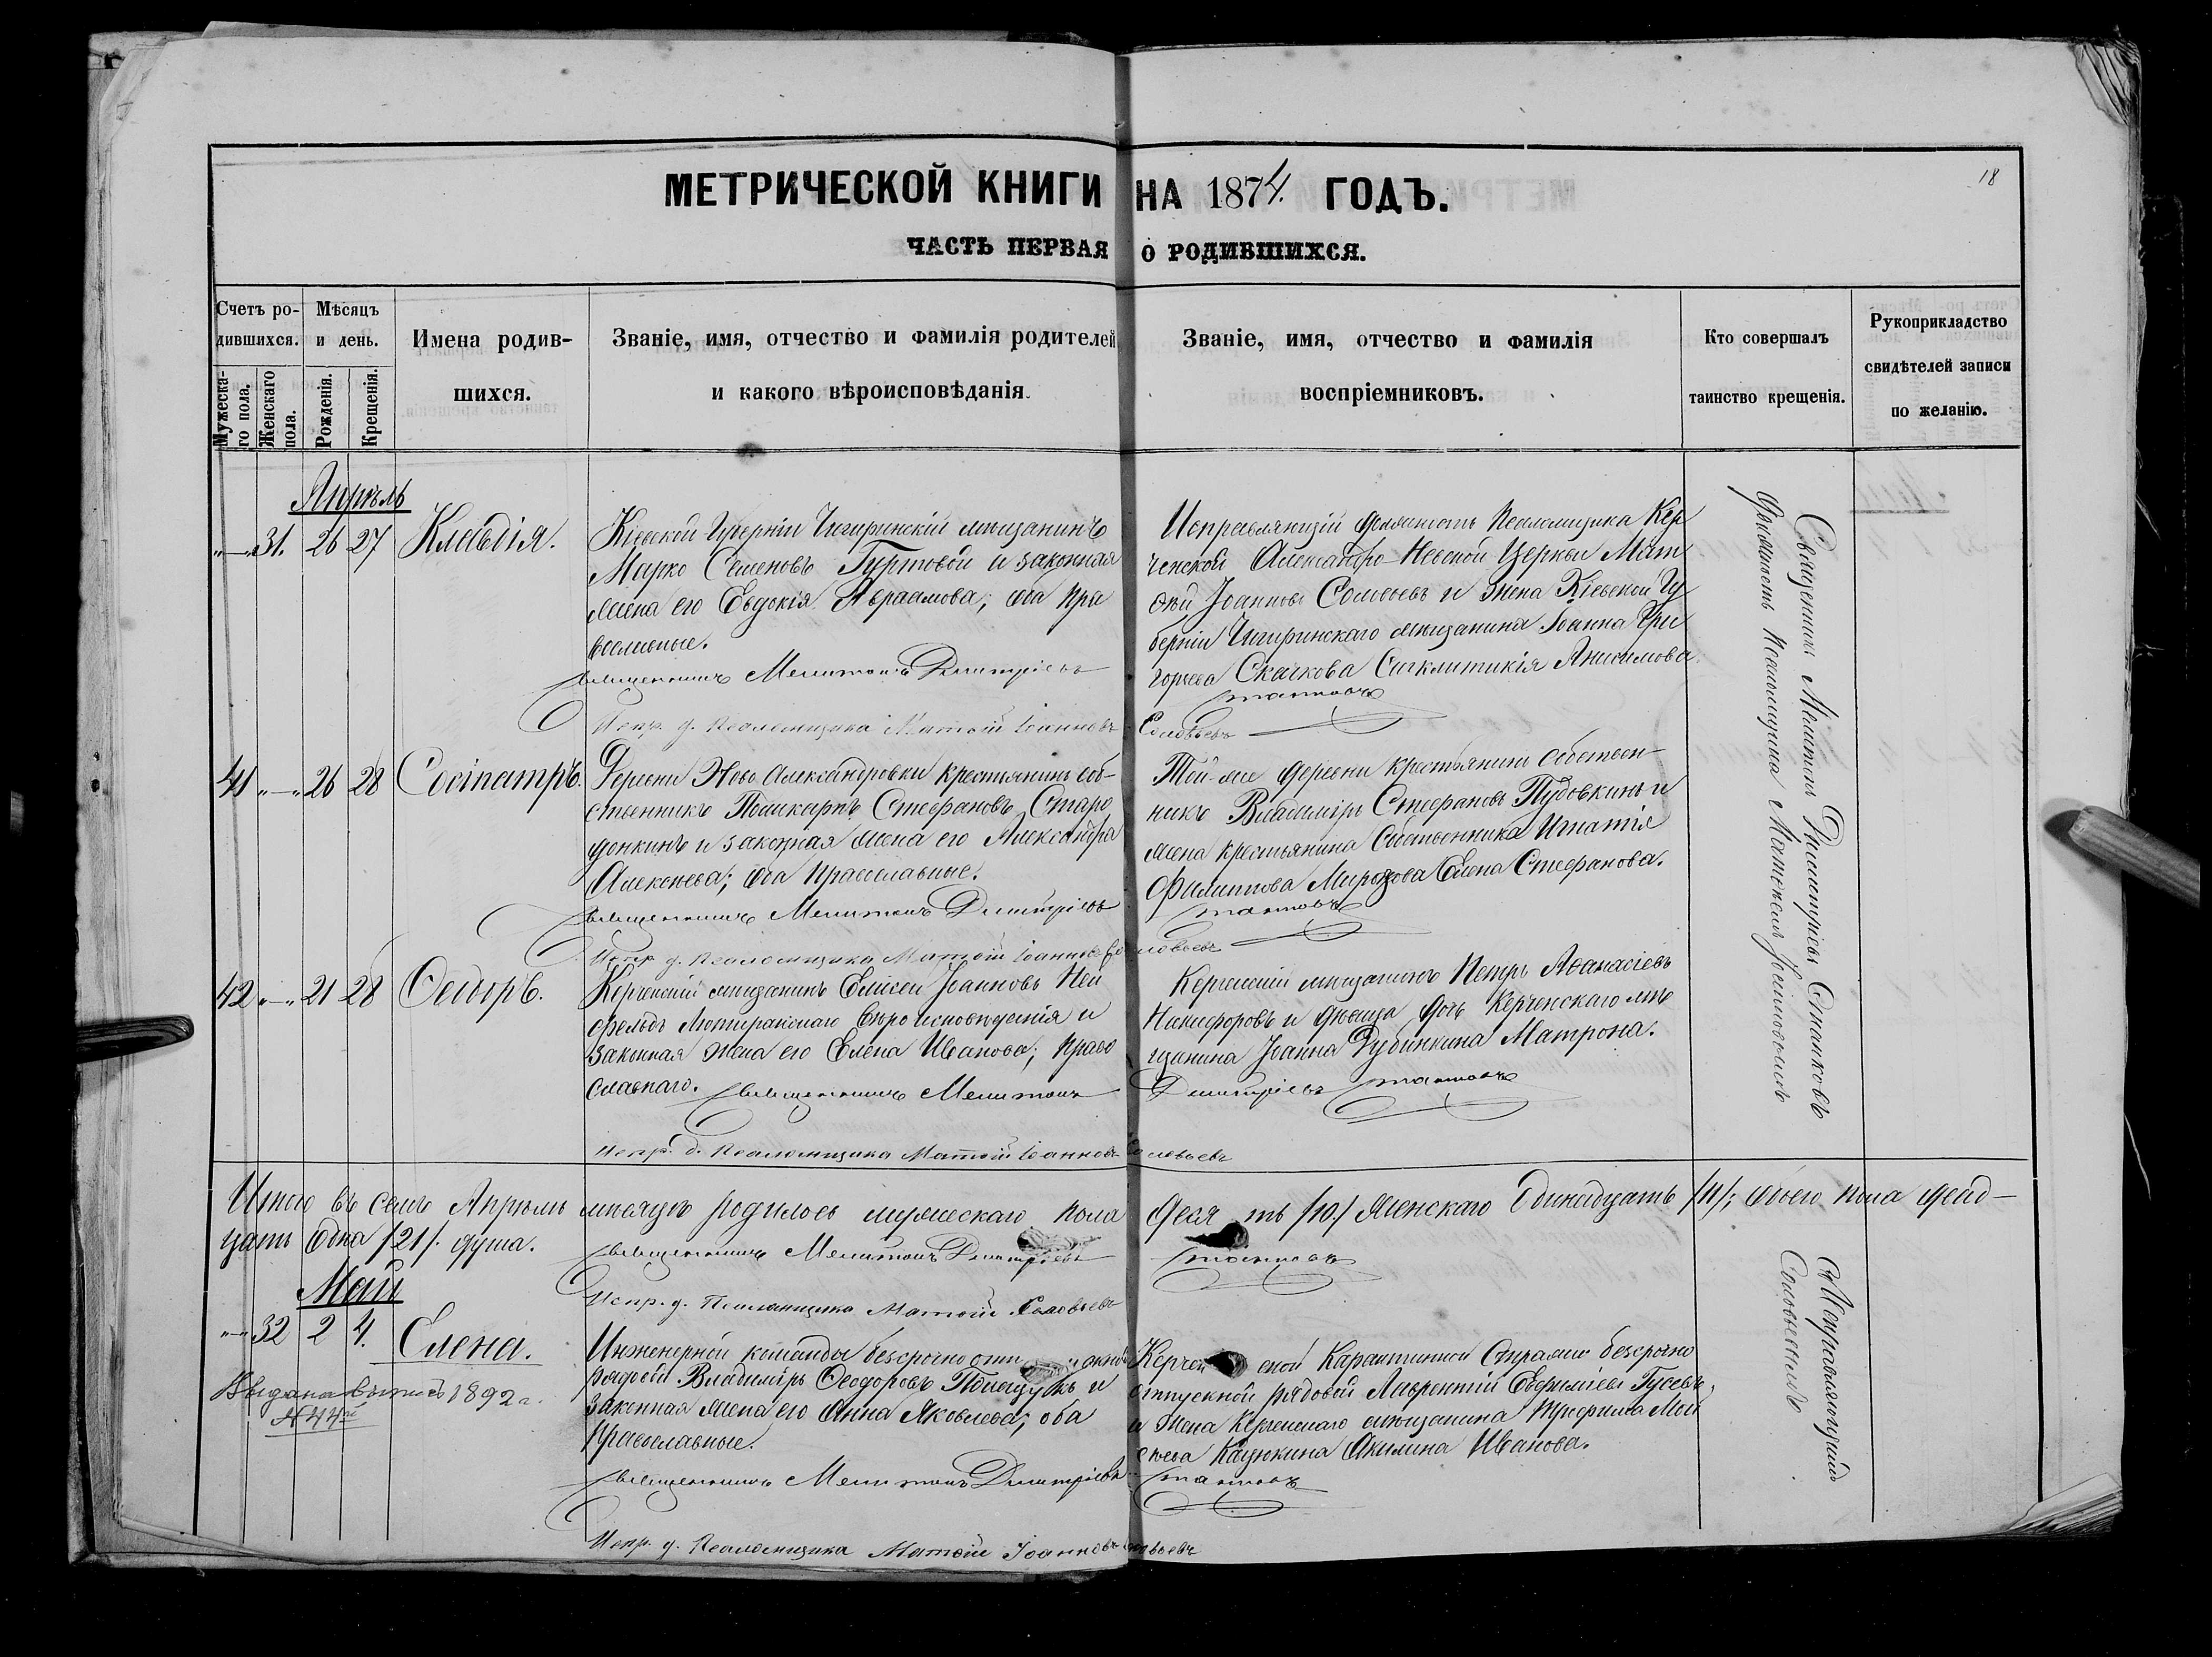 18
МЕТРИЧЕСКОЙ КНИГИ НА 1874. ГОДЪ.
ЧАСТЬ ПЕРВАЯ О РОДИВШИХСЯ.
Счетъ ро-
дившихся.
Мужеска-
го пола.
Женскаго
пола.
Мѣсяцъ
и день.
Рожденія.
Крещенія.
Имена родив-
шихся.
Званіе, имя, отчество и фамилія родителей
и какого вѣроисповѣданія.
Званіе, имя, отчество и фамилія
воспріемниковъ.
Кто совершалъ
таинство крещенія.
Рукоприкладство
свидѣтелей записи
по желанію.
Апрѣль
„—„ 31. 26 27 Клавдія.
Кіевской Губерніи Чигиринскій мѣщанинъ
Марко Семеновъ Гуртовой и законная
жена его Евдокія Авраамова; оба пра
вославные.
Священникъ Мелитонъ Димитріевъ
Испр. д. Псаломщика Матѳій Іоанновъ Соловьевъ
Исправляющій должность Псаломщика Кер
ченской Александро-Невской Церкви Мат
ѳій Іоанновъ Соловьевъ и жена Кіевской Гу
берніи Чигиринскаго мѣщанина Іоанна Гри
горьева Скачкова Сигклитикія Анисимова.
Священникъ Мелитонъ Димитріевъ
должность Псаломщика Матѳеемъ
41 „—„ 26 28 Сосіпатръ.
Деревни Ново Александровки крестьянинъ соб-
ственникъ Поликарпъ Стефановъ Старо
донкинъ и законная жена его Александра
Алексѣева; оба православные.
Священникъ Мелитонъ Димитріевъ
Испр. д. Псаломщика Матѳій Іоанновъ Соловьевъ
Той-же деревни крестьянинъ собствен-
никъ Владиміръ Стефановъ Пудовкинъ и
жена крестьянина Собственника Игнатія
Филиппова Елена Стефанова.
42 „—„ 21 28 Ѳеодоръ.
Керченскій мѣщанинъ Елисей Іоанновъ Ней
фельдъ Лютеранскаго вѣроисповѣданія и
законная жена его Елена Иванова; право
славнаго. Священникъ Мелитонъ Димитріевъ
Испр. д. Псаломщика Матѳій Іоанновъ Соловьевъ
Керченскій мѣщанинъ Петръ Аѳанасіевъ
Никифоровъ и дѣвица дочь Керченскаго мѣ
щанина Іоанна Дубинкина Матрона.
Итого въ семъ Апрѣлѣ мѣсяцѣ родилось мужескаго пола десять /10./ Женскаго Одинадцать /11/; обоего пола двад-
цать одна /21/. душа.
Священникъ Мелитонъ Димитріевъ
Испр. д. Псаломщика Матѳій Соловьевъ
Май
„—„ 32 2 4. Елена.
Выдана выпись 1892 г.
№ 44й
Инженерной команды безсрочно отп
рядовой Владиміръ Ѳеодоровъ и
законная жена его Анна Яковлева; оба
Православные.
Священникъ Мелитонъ Димитріевъ
Испр. д. Псаломщика Матѳій Іоанновъ Соловьевъ
Керченской Карантинной Стражи безсрочно
отпускной рядовой Лаврентій Евфиміевъ Гусевъ,
и жена Керченскаго мѣщанина Трифима Мои
сѣева Кацюкина Акилина Иванова.
Исправляющій
Соловьевымъ